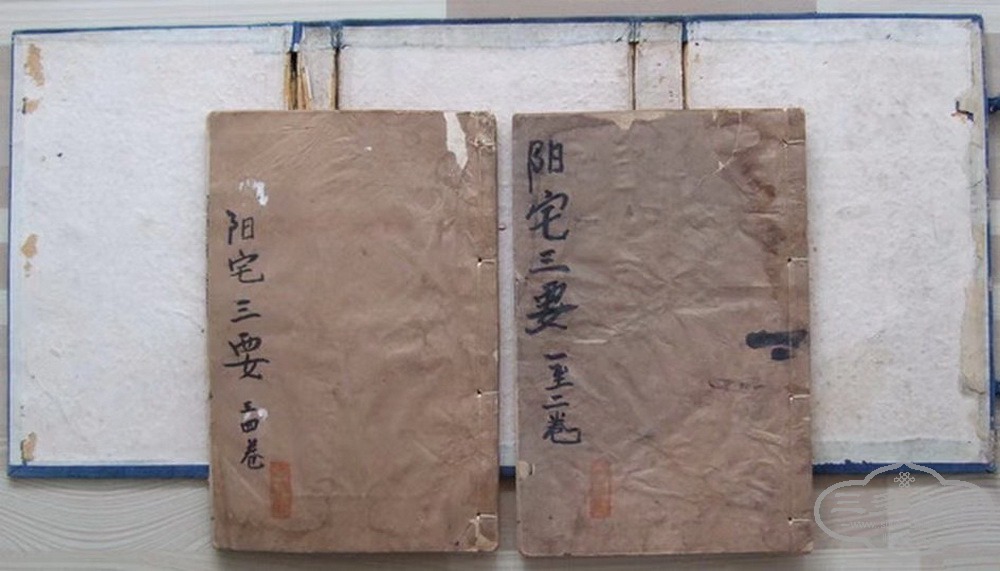 阳宅三要 一至二卷
阳宅三要 三四卷